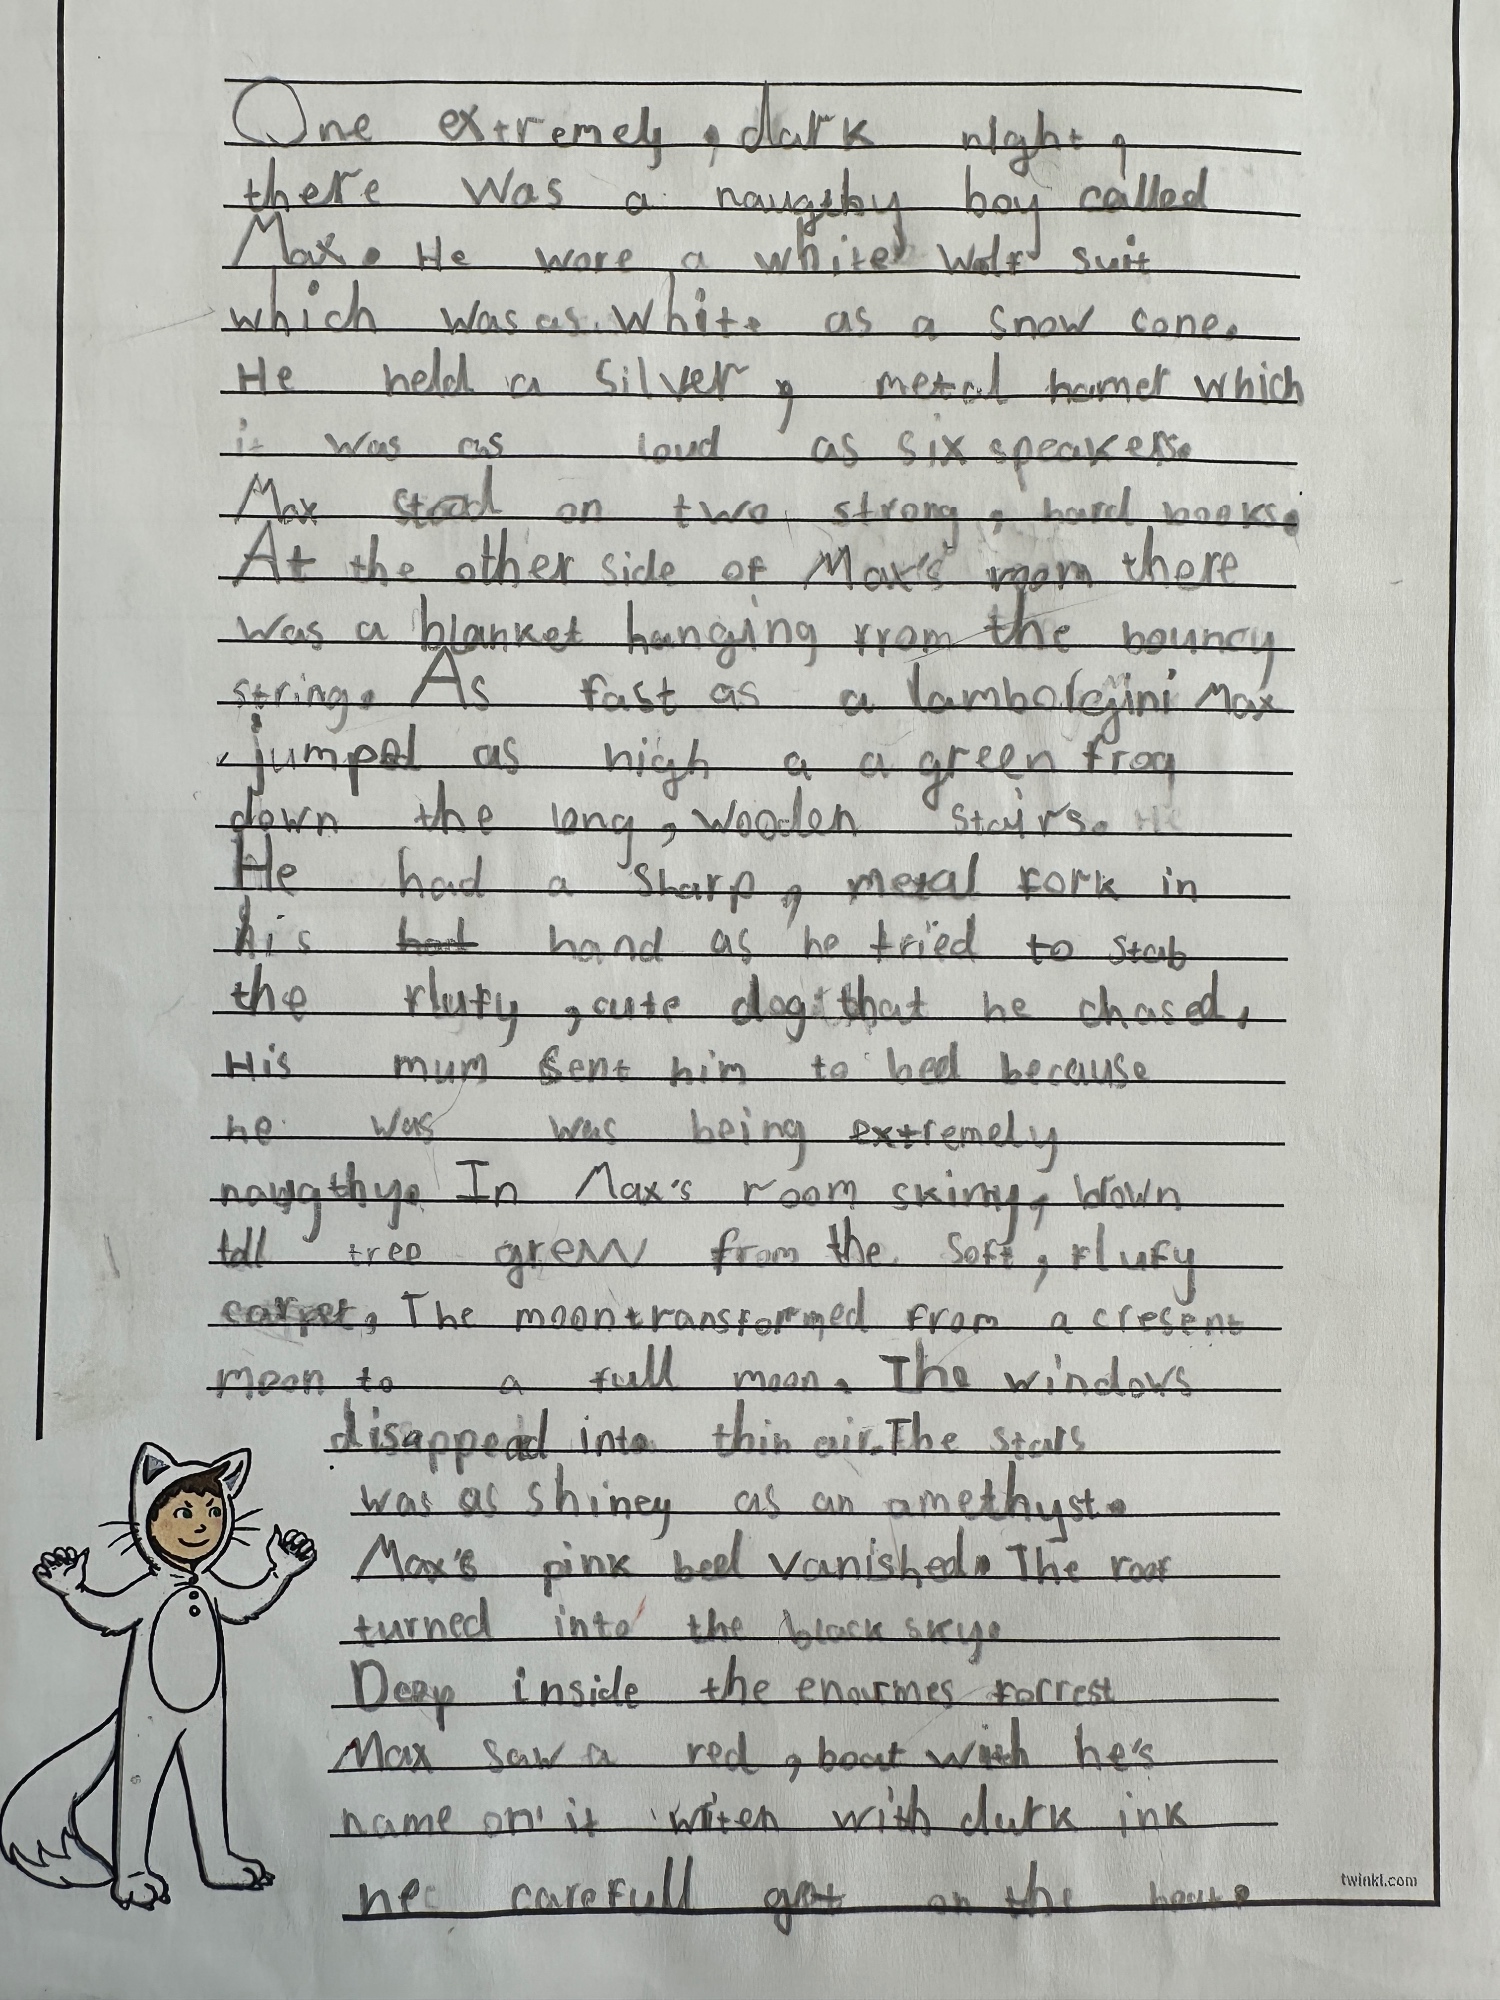 One extremely, dark night,
there was a naugthy boy called
Max. He wore a white wolf suit
which was as white as a snow cone.
He held a silver, metal hamer which
it was as loud as six speakers.
Max stood on two strong, hard books.
At the other side of Max's room there
was a blanket hanging from the bouncy
string. As fast as a lambolejini Max
jumped as high a a green frog
down the long, wooden stairs. He
He had a sharp, metal fork in
his hand as he tried to stab
the flufy, cute dog that he chased.
His mum sent him to bed because
he was was being extremely
naugthy. In Max's room skinny, brown
tall tree grew from the soft, flufy
carpet. The moon transformed from a cresent
moon to a full moon. The windows
disappeard into thin air. The stars
was as shiney as an amethyst.
Max's pink bed vanished. The roof
turned into the black sky.
Deep inside the enourmes forrest
Max saw a red, boat with he's
name on it writen with dark ink
he carefull got on the boat.
twinkl.com